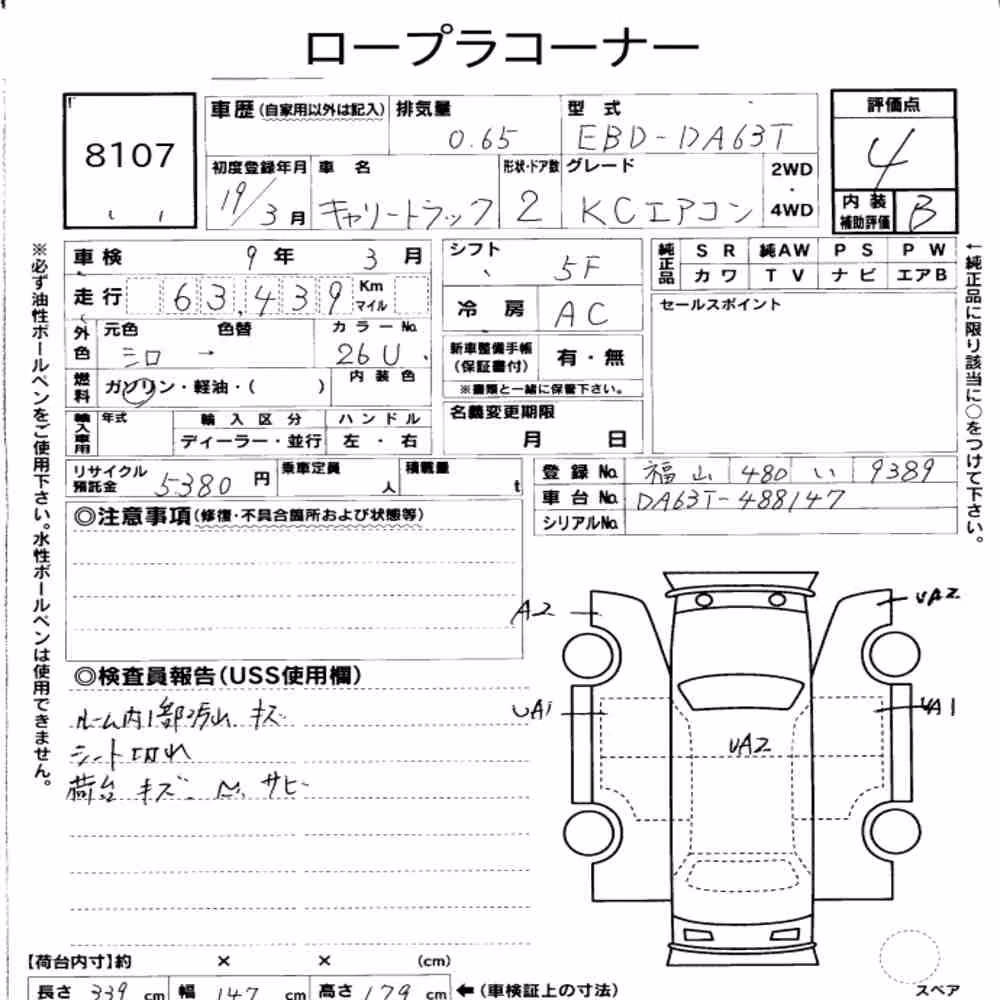 ロープラコーナー
8107
車歴(自家用以外は記入)
排気量 0.65
型式 EBD-DA63T
評価点 4
初度登録年月 19/3月
車名 キャリートラック
形状・ドア数 2
グレード KCエアコン
2WD・4WD
内装補助評価 B
車検 9年 3月
走行 63,439 Km マイル
外色 元色 シロ →
色替
カラーNo. 26U
燃料 ガソリン・軽油・( )
内装色
輸入車用 年式
輸入区分 ディーラー・並行
ハンドル 左・右
シフト 5F
冷房 AC
新車整備手帳(保証書付) 有・無
※書類と一緒に保管下さい。
名義変更期限 月 日
純正品 SR 純AW PS PW
カワ TV ナビ エアB
セールスポイント
リサイクル預託金 5380円
乗車定員 人
積載量 t
登録No. 福山 480 い 9389
車台No. DA63T-488147
シリアルNo.
※必ず油性ボールペンをご使用下さい。水性ボールペンは使用できません。
←純正品に限り該当に○をつけて下さい。
◎注意事項(修復・不具合箇所および状態等)
◎検査員報告(USS使用欄)
ルーム内1部汚れ キズ
シート切れ
荷台 キズ サビ
A2
UA2
UA1
UA1
UA2
【荷台内寸】約 × × (cm)
長さ 339 cm 幅 147 cm 高さ 179 cm ←(車検証上の寸法)
スペア